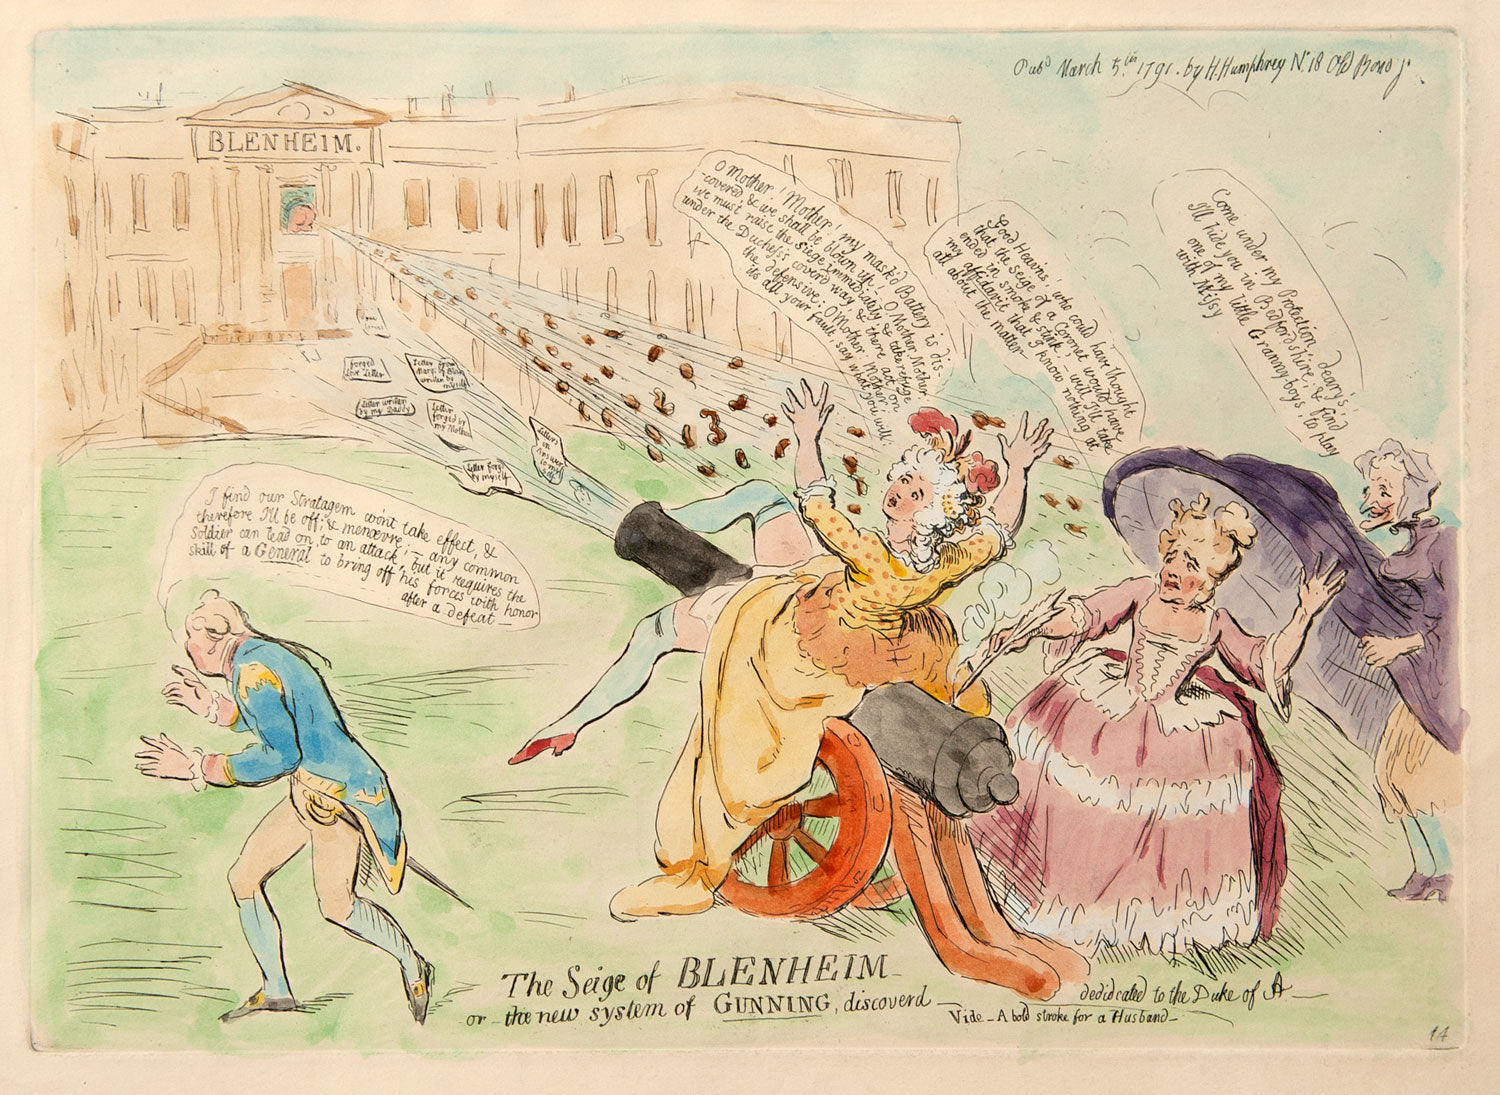 Pubd March 5th 1791. by H. Humphrey No 18 Old Bond St
BLENHEIM.
O Mother! Mother! my mask'd Battery is dis-
-coverd & we shall be blown up! – O Mother, Mother
we must raise the siege immediately & take refuge
under the Duchess's coverd way & there act on
the defensive: O Mother. Mother
its all your fault say what you will.
Good Heavns! who could have thought
that the seige of a Coronet would have
ended in smoke & stink! – well I'll take
my affidavit that I know nothing at
all about the matter
Come under my Protection, dearys!
I'll hide you in Bedfordshire; & find
one of my little Granny-boys to play
with Missy
forged
Love Letter
Letter from
Marq: of Blan
written by
myself
Letter written
by my Daddy
Letter
forged by
my Mother
Letters
in
Answer
to my
self
Letter forgd
by myself
I find our Stratagem won't take effect, &
therefore I'll be off, & menœvre; – any common
Soldier can lead on, to an attack; but it requires the
skill of a General to bring off his forces with honor
after a defeat –
The Seige of BLENHEIM –
or – the new system of GUNNING, discoverd –
dedidcated to the Duke of A –
Vide – A bold stroke for a Husband –
14